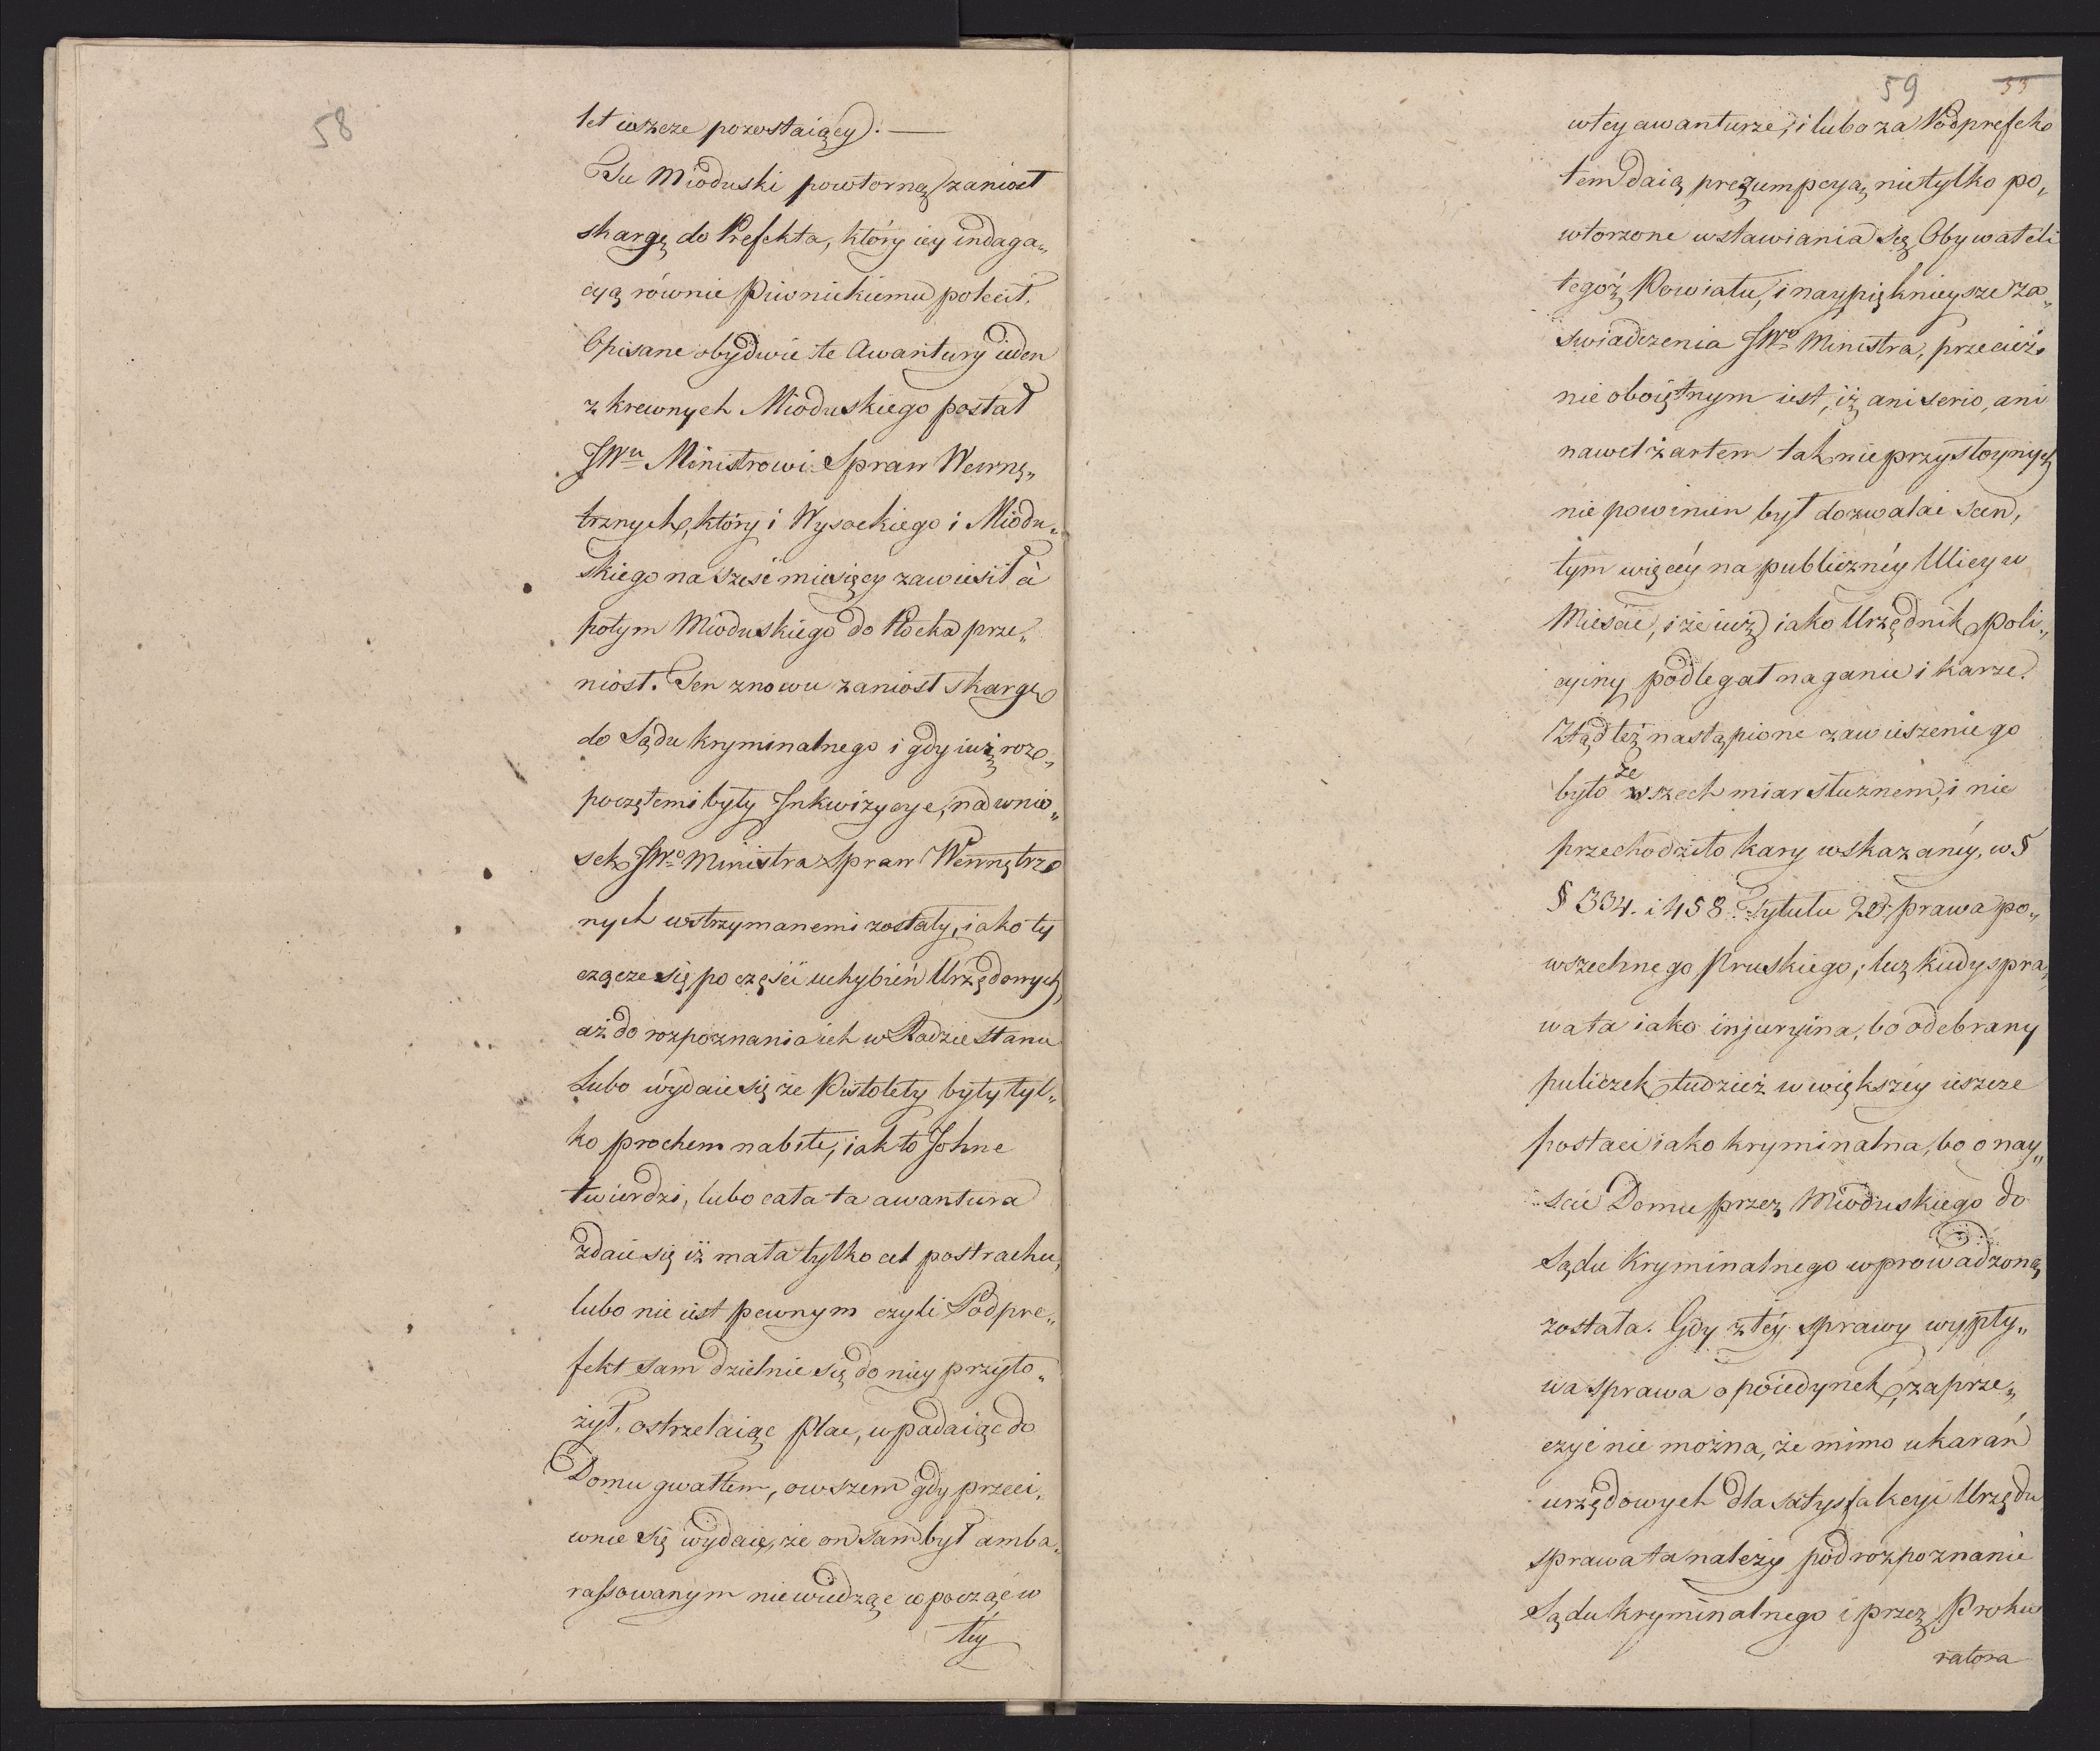 58
let ieszcze pozostaiący). —
Tu Mioduski powtorną zaniosł
skargę do Prefekta, który iey indaga„
cyą równie Piwnickiemu polecił.
Opisane obydwie te Awantury ieden
z krewnych Mioduskiego posłał
JWu Ministrowi Spraw Wewnę„
trznych, który i Wysockiego i Miodu„
skiego na sześć miesięcy zawiesił à
potym Mioduskiego do Płocka prze„
niosł. Ten znowu zaniosł skargę
do Sądu kryminalnego i gdy iuż roz„
poczętemi były Inkwizycye, na wnio„
sek JWo Ministra Spraw Wewnętrz
nych wstrzymanemi zostały, iako ty
czącze się po części uchybień Urzędowych,
aż do rozpoznania ich w Radzie Stanu
Lubo wydaie się że Pistolety były tyl„
ko prochem nabite, iak to Johne
twierdzi, lubo cała ta awantura
zdaie się iż mała tylko cel postrachu,
lubo nie iest pewnym czyli Podpre„
fekt sam dzielnie się do niey przyło„
żył, ostrzelaiąc plac, wpadaiąc do
Domu gwałtem, owszem gdy przeci„
wnie się wydaie, że on sam był amba„
rassowanym niewiedząc co począć w
téy
59 55
w tey awanturze, i lubo za Podprefek
tem daią prezumpcyą nietylko po„
wtorzone wstawiania się Obywateli
tegoż Powiatu, i naypięknieysze za„
swiadczenia JWo Ministra, przecież
nie oboiętnym iest, iż ani serio, ani
nawet żartem tak nieprzystoynych
nie powinien był dozwalać scen,
tym więcéy na publicznéy Ulicy w
Mieście, i że iuż iako Urzędnik poli„
cyiny podlegał naganie i karze.
Ztąd też nastąpione zawieszenie go
było ze wszech miar słusznem, i nie
przechodziło kary wskazanéy, w §
§ 334. i 458. Tytułu 20. prawa po„
wszechnego Pruskiego; lecz kiedy spra„
wa ta iako injuryina, bo odebrany
policzek tudzież w większéy ieszcze
postaci iako kryminalna, bo o nay„
scie Domu przez Mioduskiego do
Sądu Kryminalnego wprowadzoną
została. Gdy z téy sprawy wypły„
wa sprawa o poiedynek, zaprze„
czyć nie można, że mimo ukarań
urzędowych dla satysfakcyi Urzędu
sprawa ta należy pod rozpoznanie
Sądu kryminalnego i przez Proku
ratora